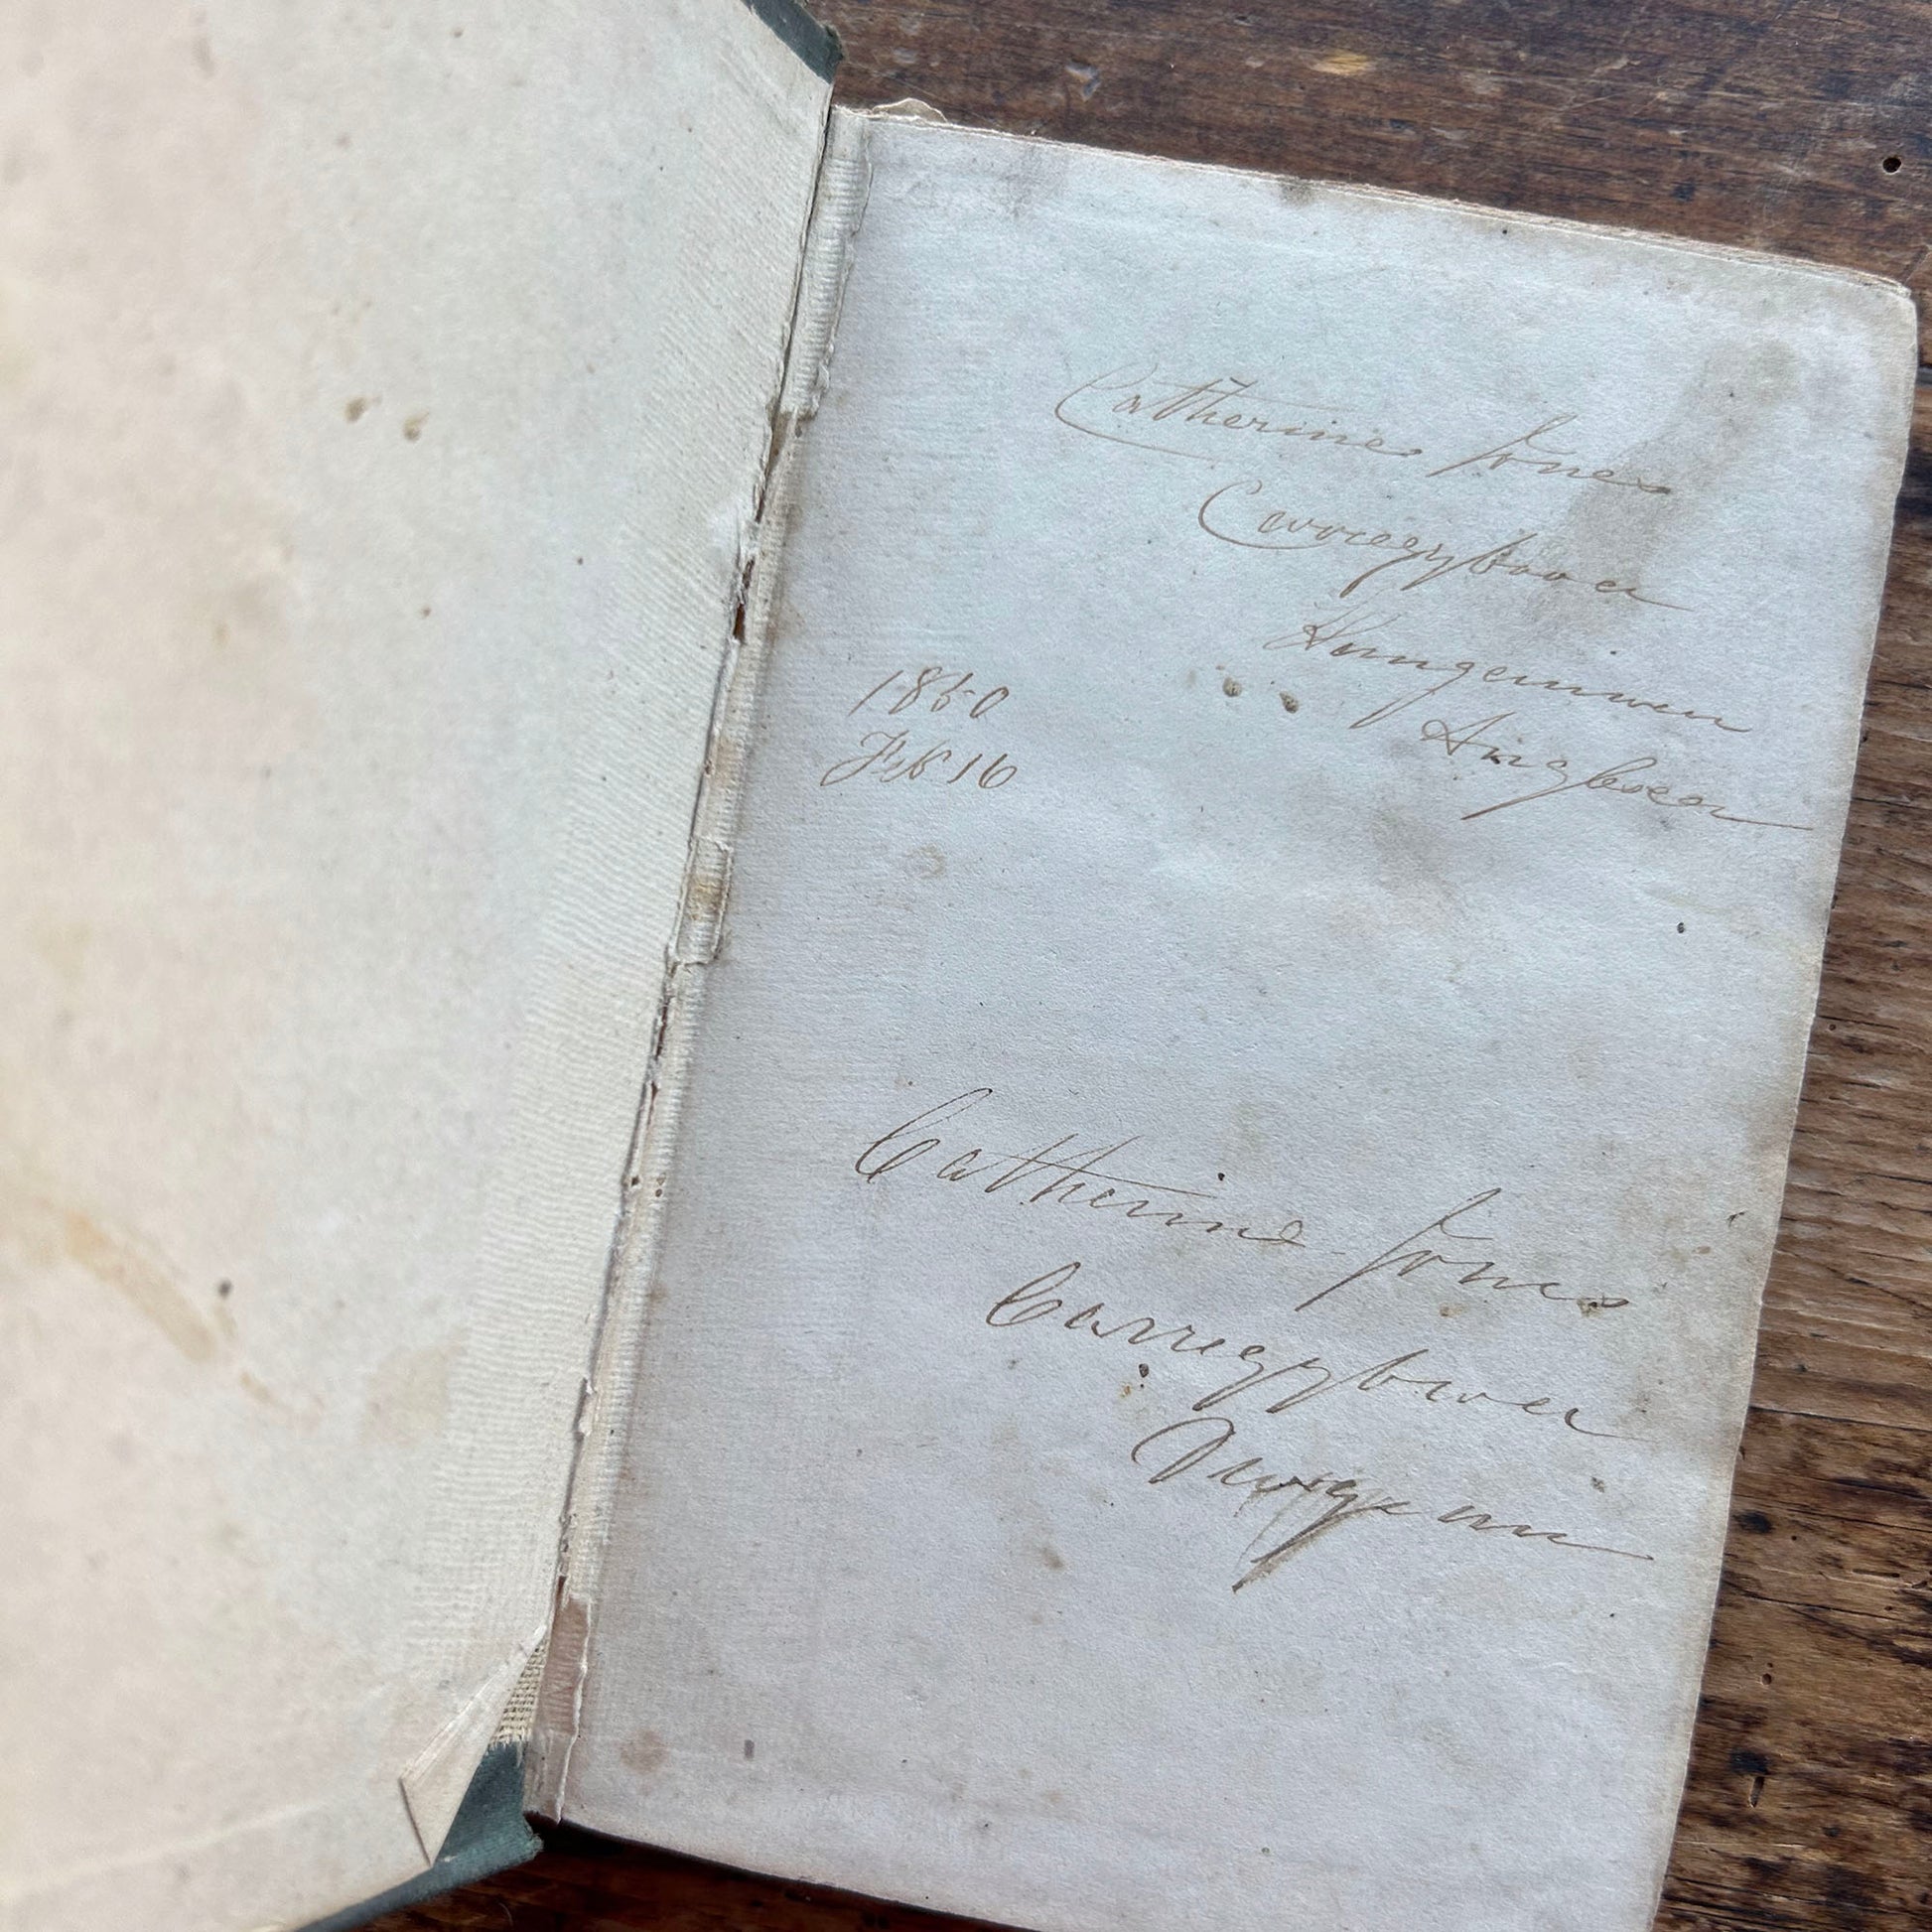 Catherine Jones
Carregybwa
Llangeinwen
Anglesea
1850
Feb 16
Catherine Jones
Carregybwa